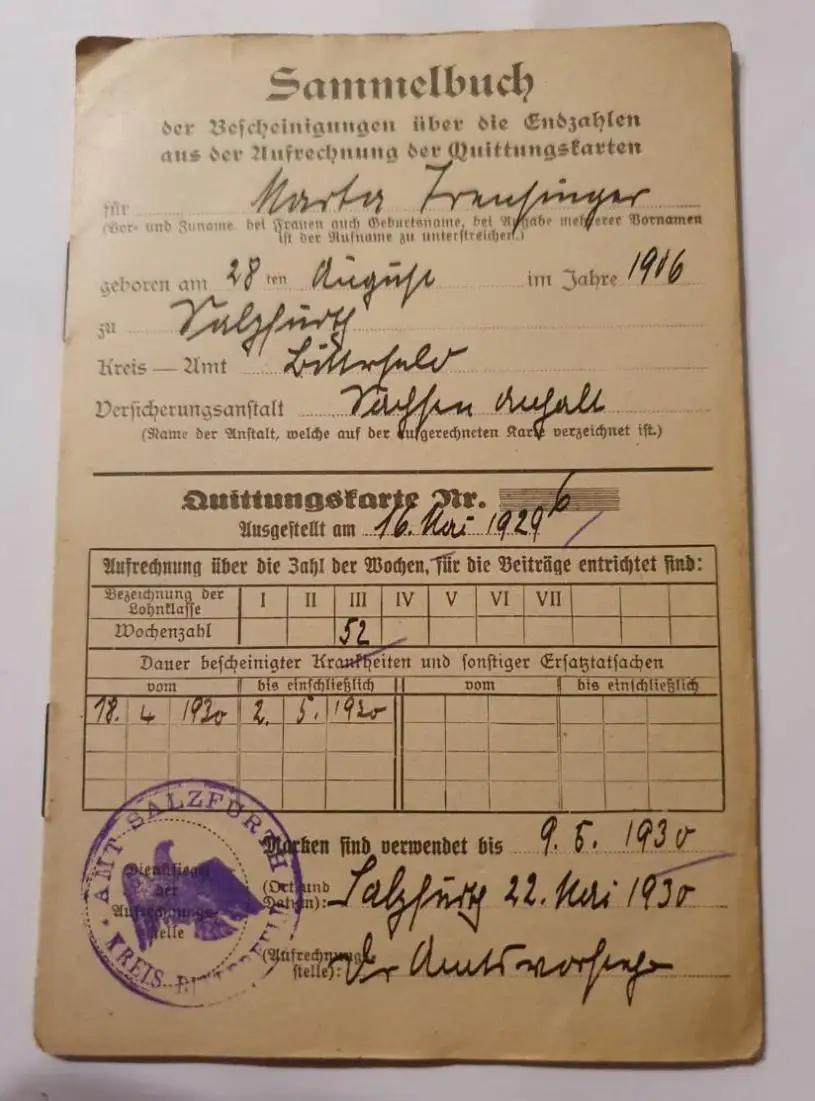 Sammelbuch
der Bescheinigungen über die Endzahlen
aus der Aufrechnung der Quittungskarten
für Marta
(Vor- und Zuname, bei Frauen auch Geburtsname, bei Angabe mehrerer Vornamen
ist der Rufname zu unterstreichen.)
geboren am 28 ten August im Jahre 1906
zu Salzfurth
Kreis — Amt Bitterfeld
Versicherungsanstalt Sachsen Anhalt
(Name der Anstalt, welche auf der aufgerechneten Karte verzeichnet ist.)
Quittungskarte Nr. 6
Ausgestellt am 16. Mai 1929
Aufrechnung über die Zahl der Wochen, für die Beiträge entrichtet sind:
Bezeichnung der Lohnklasse I II III IV V VI VII
Wochenzahl 52
Dauer bescheinigter Krankheiten und sonstiger Ersatztatsachen
vom bis einschließlich vom bis einschließlich
18. 4 1930 2. 5. 1930
Marken sind verwendet bis 9. 5. 1930
(Ort und Datum): Salzfurth 22. Mai 1930
(Aufrechnungsstelle): Der Amtsvorsteher
AMT SALZFURTH
KREIS BITTERFELD
Dienstsiegel
der
Aufrechnungs-
stelle